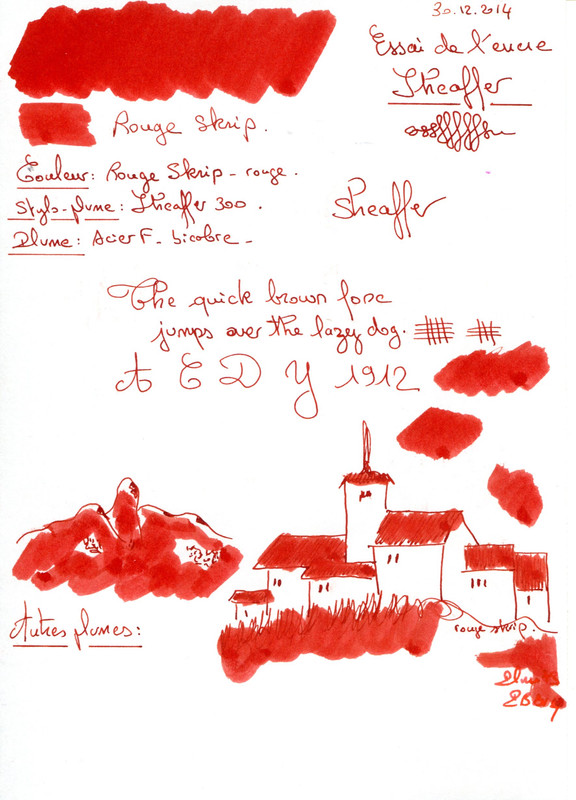 30.12.2014
Essai de l'encre
Sheaffer
Rouge Skrip.
Couleur: Rouge Skrip - rouge.
Stylo-plume: Sheaffer 300.
Plume: Acier F - bicolore -
Sheaffer
The quick brown foxe
jumps over the lazy dog.
A E D Y 1912
Autres plumes:
rouge skrip.